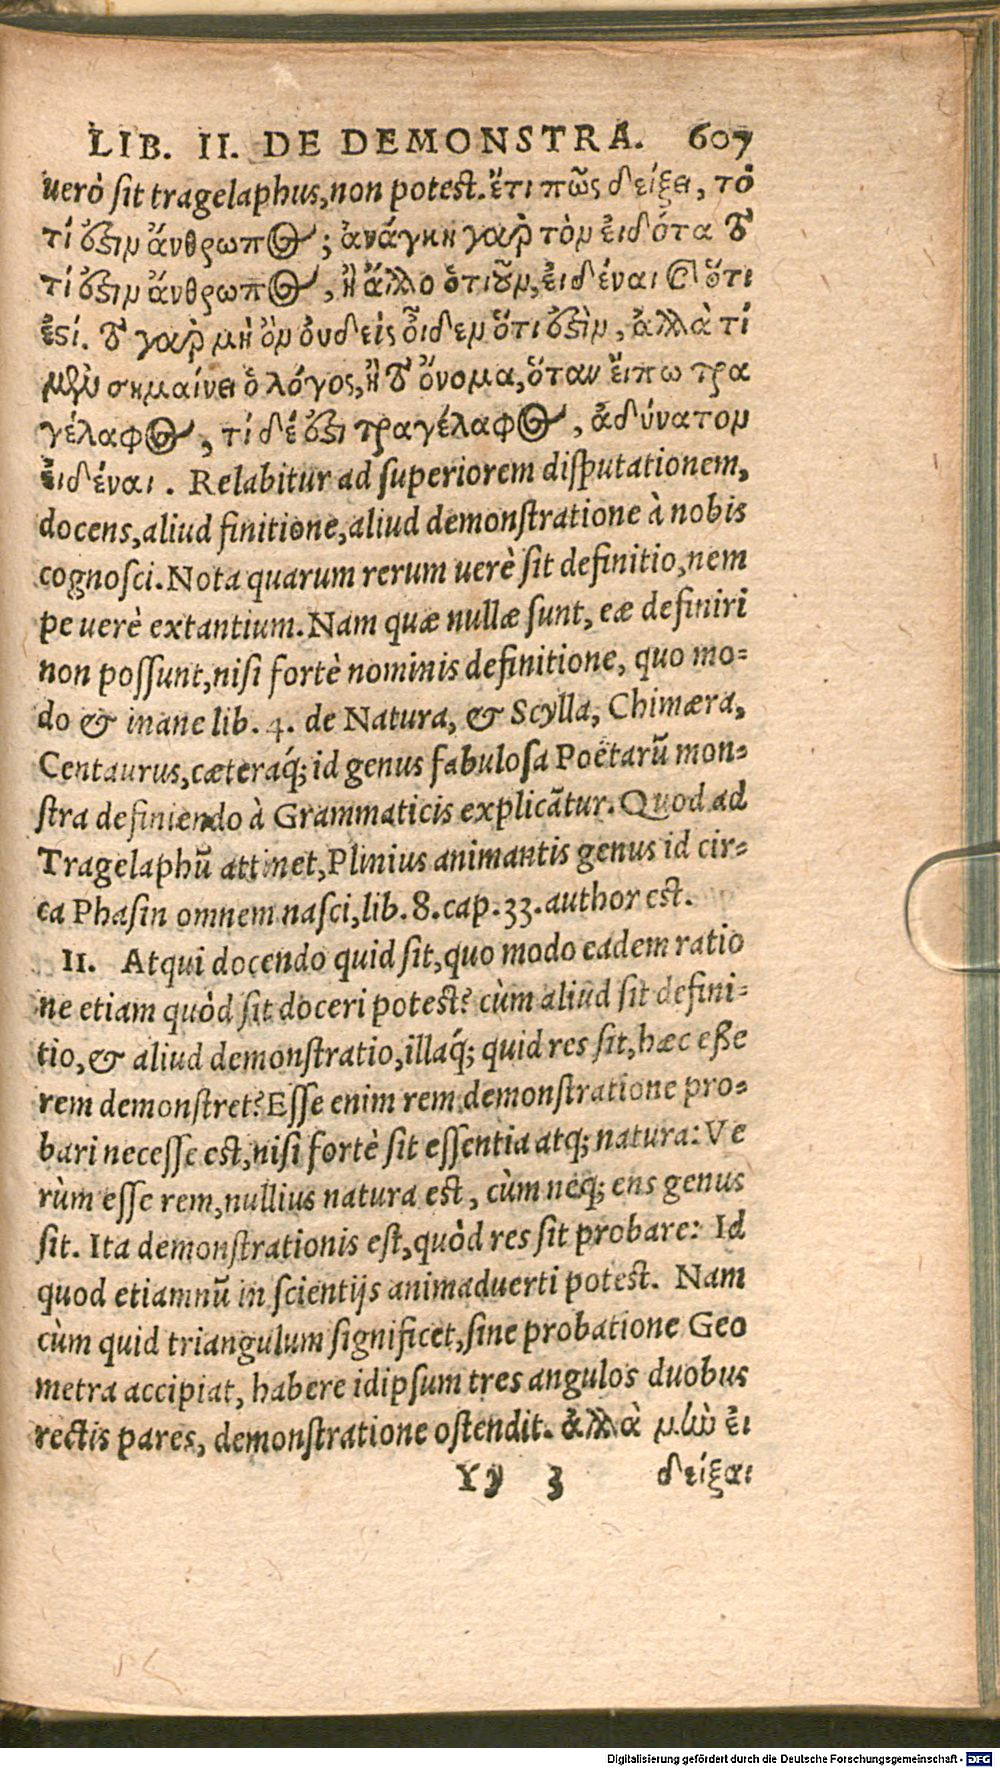 LIB. II. DE DEMONSTRA. 607
uerò ſit tragelaphus, non potest. ἔτι πῶς δείξει, τὸ
τί ἐστιν ἄνθρωπος; ἀνάγκη γὰρ τὸν εἰδότα τὸ
τί ἐστιν ἄνθρωπος, ἢ ἄλλο ὁτιοῦν, εἰδέναι καὶ ὅτι
ἐστί. τὸ γὰρ μὴ ὂν οὐδεὶς οἶδεν ὅτι ἐστὶν, ἀλλὰ τί
μὲν σημαίνει ὁ λόγος, ἢ τὸ ὄνομα, ὅταν εἴπω τρα
γέλαφος, τί δέ ἐστι τραγέλαφος, ἀδύνατον
εἰδέναι. Relabitur ad ſuperiorem diſputationem,
docens, aliud finitione, aliud demonſtratione à nobis
cognoſci. Nota quarum rerum uerè ſit definitio, nem
pe uerè extantium. Nam quæ nullæ ſunt, eæ definiri
non poſſunt, niſi fortè nominis definitione, quo mo=
do & inane lib. 4. de Natura, & Scylla, Chimæra,
Centaurus, cæteraq́; id genus fabuloſa Poëtarũ mon=
ſtra definiendo à Grammaticis explicãtur. Quod ad
Tragelaphũ attinet, Plinius animantis genus id cir=
ca Phaſin omnem naſci, lib. 8. cap. 33. author est.
II. Atqui docendo quid ſit, quo modo eadem ratio
ne etiam quòd ſit doceri potest? cùm aliud ſit defini=
tio, & aliud demonſtratio, illaq́; quid res ſit, hæc eſſe
rem demonſtret? Eſſe enim rem demonſtratione pro=
bari neceſſe est, niſi fortè ſit eſſentia atq; natura: Ve
rùm eſſe rem, nullius natura est, cùm neq; ens genus
ſit. Ita demonſtrationis eſt, quòd res ſit probare: Id
quod etiamnũ in ſcientijs animaduerti potest. Nam
cùm quid triangulum ſignificet, ſine probatione Geo
metra accipiat, habere idipſum tres angulos duobus
rectis pares, demonſtratione oſtendit. ἀλλὰ μὴν εἰ
Yy 3 δείξαι
Digitalisierung gefördert durch die Deutsche Forschungsgemeinschaft - DFG